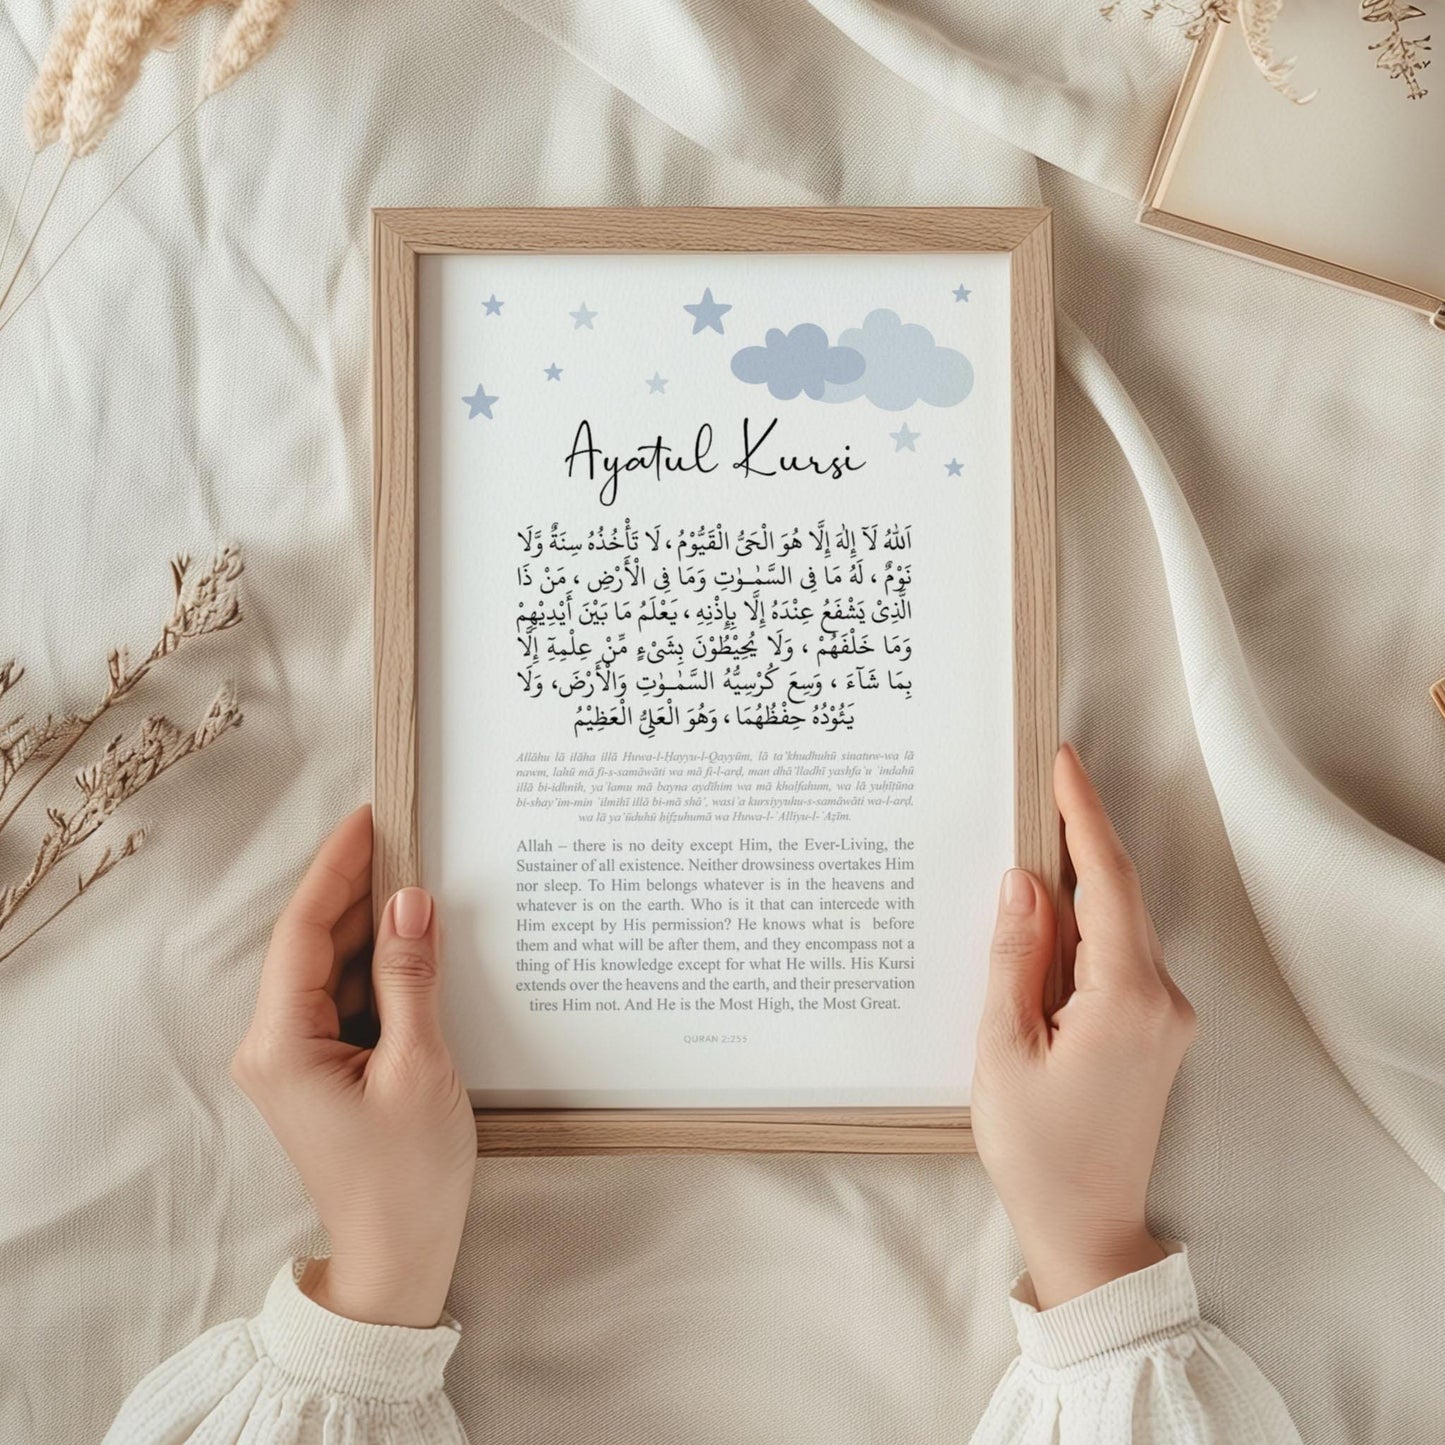 Ayatul Kursi
اَللّٰهُ لَآ اِلٰهَ اِلَّا هُوَ الْحَىُّ الْقَيُّوْمُ ، لَا تَأْخُذُهٗ سِنَةٌ وَّلَا
نَوْمٌ ، لَهٗ مَا فِى السَّمٰـوٰتِ وَمَا فِى الْأَرْضِ ، مَنْ ذَا
الَّذِىْ يَشْفَعُ عِنْدَهٗ إِلَّا بِإِذْنِهٖ ، يَعْلَمُ مَا بَيْنَ أَيْدِيْهِمْ
وَمَا خَلْفَهُمْ ، وَلَا يُحِيْطُوْنَ بِشَىْءٍ مِّنْ عِلْمِهٖٓ إِلَّا
بِمَا شَآءَ ، وَسِعَ كُرْسِيُّهُ السَّمٰـوٰتِ وَالْأَرْضَ، وَلَا
يَئُوْدُهٗ حِفْظُهُمَا ، وَهُوَ الْعَلِىُّ الْعَظِيْمُ
Allāhu lā ilāha illā Huwa-l-Ḥayyu-l-Qayyūm, lā ta'khudhuhū sinatuw-wa lā
nawm, lahū mā fi-s-samāwāti wa mā fi-l-arḍ, man dhā'lladhī yashfa'u `indahū
illā bi-idhnih, ya'lamu mā bayna aydīhim wa mā khalfahum, wa lā yuḥīṭūna
bi-shay'im-min `ilmihī illā bi-mā shā', wasi`a kursiyyuhu-s-samāwāti wa-l-arḍ,
wa lā ya'ūduhū ḥifẓuhumā wa Huwa-l-`Alliyu-l-`Aẓīm.
Allah – there is no deity except Him, the Ever-Living, the
Sustainer of all existence. Neither drowsiness overtakes Him
nor sleep. To Him belongs whatever is in the heavens and
whatever is on the earth. Who is it that can intercede with
Him except by His permission? He knows what is before
them and what will be after them, and they encompass not a
thing of His knowledge except for what He wills. His Kursi
extends over the heavens and the earth, and their preservation
tires Him not. And He is the Most High, the Most Great.
QURAN 2:255